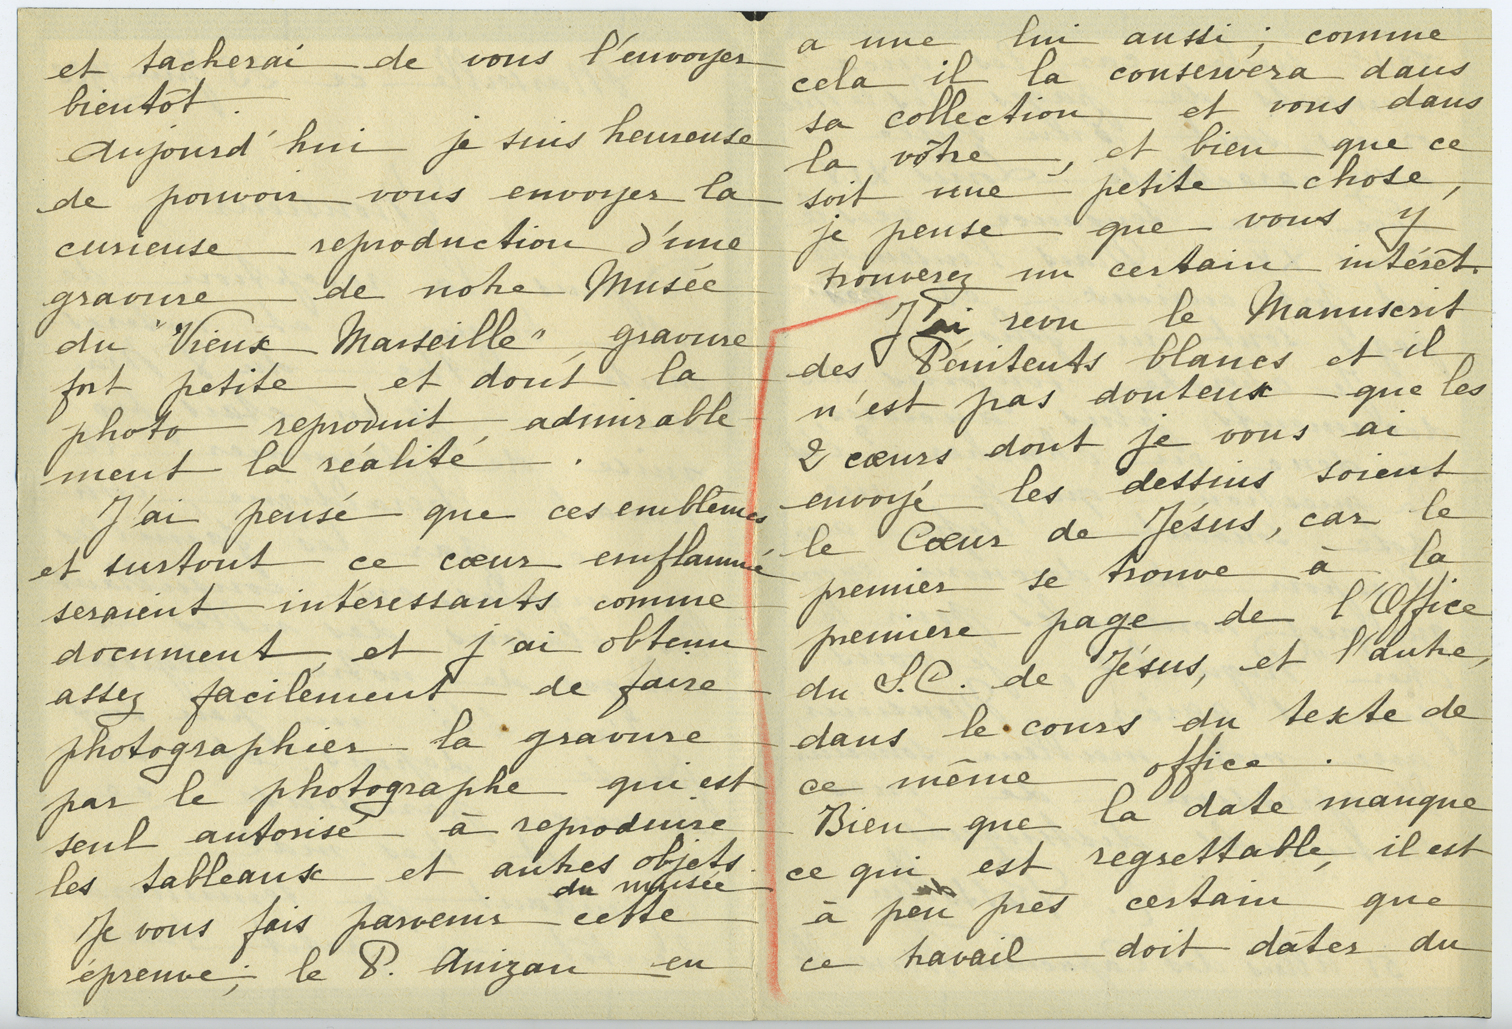 et tacherai de vous l'envoyer
bientôt.
Aujourd'hui je suis heureuse
de pouvoir vous envoyer la
curieuse reproduction d'une
gravure de notre Musée
du "Vieux Marseille" gravure
fort petite et dont la
photo reproduit admirable
ment la réalité.
J'ai pensé que ces emblèmes
et surtout ce cœur enflammé
seraient intéressants comme
document, et j'ai obtenu
assez facilement de faire
photographier la gravure
par le photographe qui est
seul autorisé à reproduire
les tableaux et autres objets
du musée
Je vous fais parvenir cette
épreuve; le P. Anizan en
a une lui aussi; comme
cela il la conservera dans
sa collection et vous dans
la vôtre, et bien que ce
soit une petite chose,
je pense que vous y
trouverez un certain intérêt.
J'ai revu le Manuscrit
des Pénitents blancs et il
n'est pas douteux que les
2 cœurs dont je vous ai
envoyé les dessins soient
le Cœur de Jésus, car le
premier se trouve à la
première page de l'Office
du S.C. de Jésus, et l'autre,
dans le cours du texte de
ce même office.
Bien que la date manque
ce qui est regrettable, il est
à peu près certain que
ce travail doit dater du